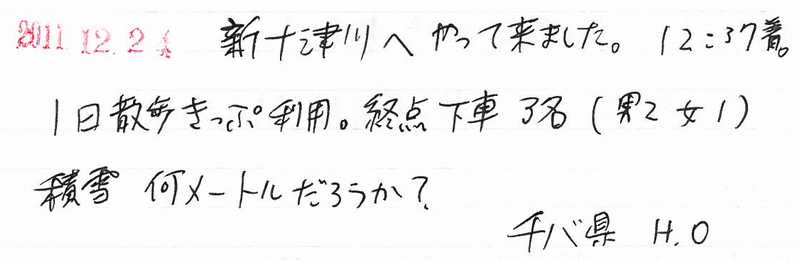 2011 12. 24 新十津川へ やって来ました。 12:37着。
1日散歩きっぷ利用。終点下車 3名 (男2 女1)
積雪 何メートルだろうか?
千バ県 H.O